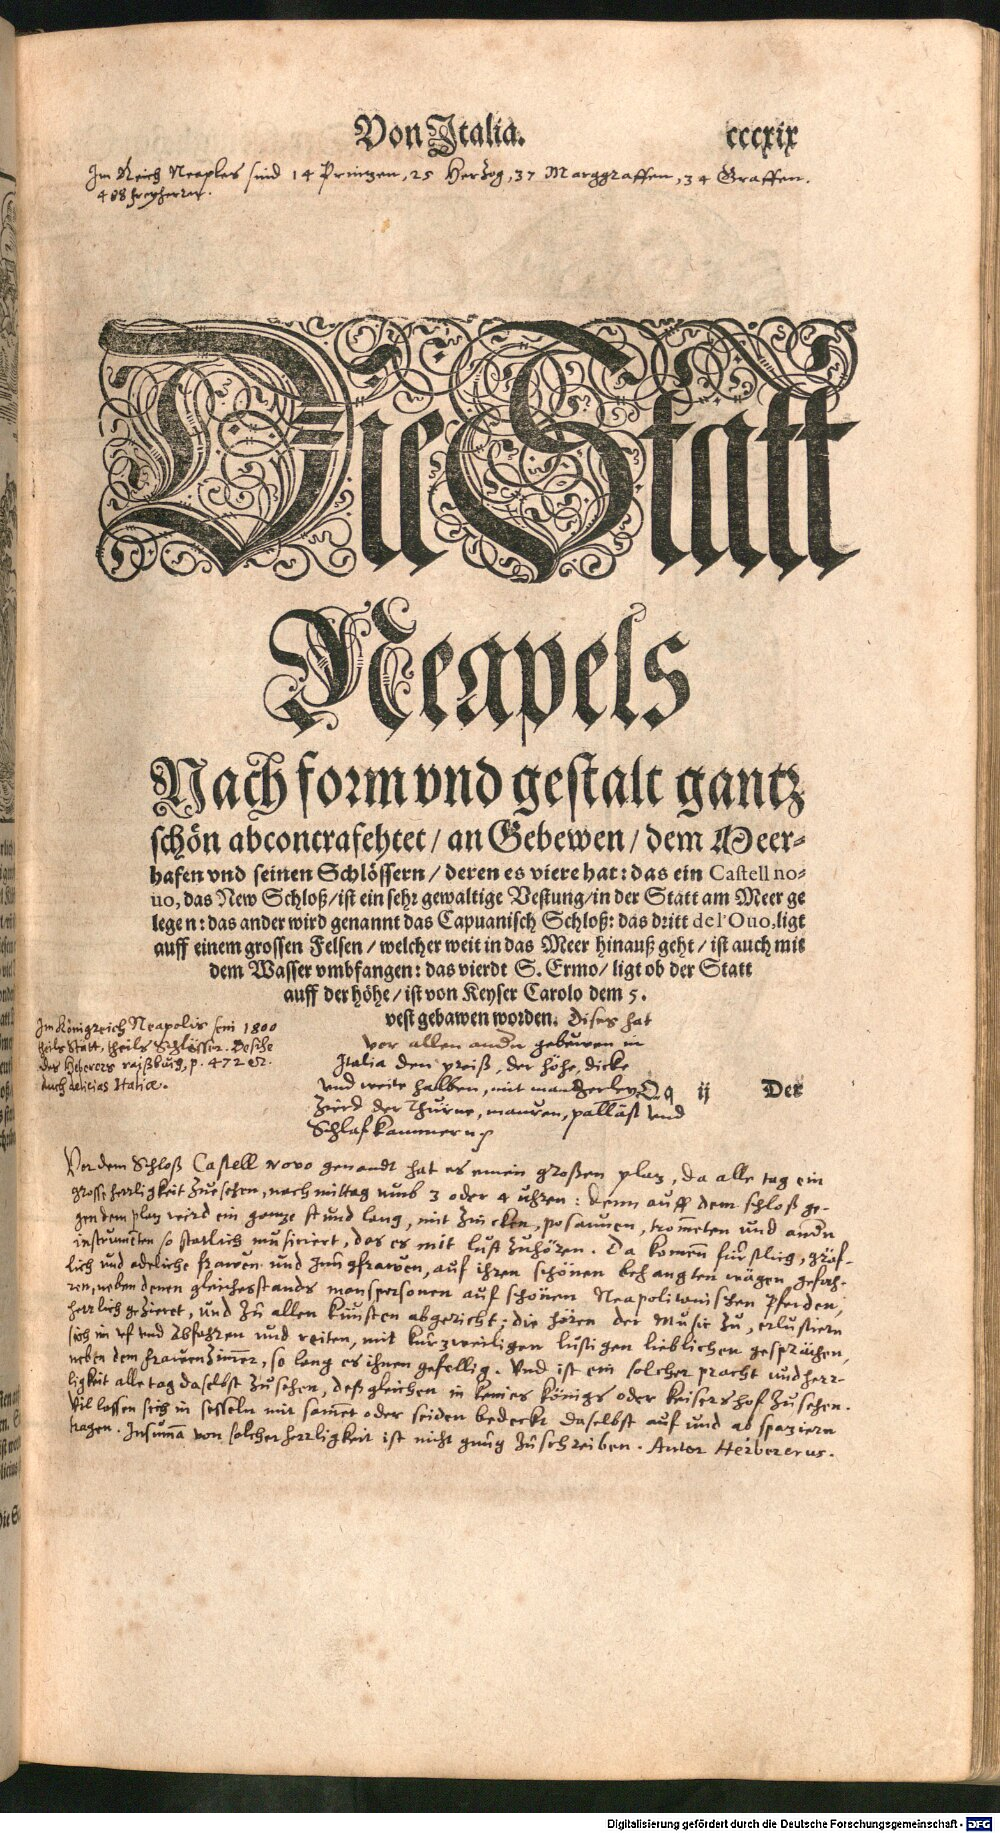 Von Italia. cccxix
Im Reich Neaples sind 14 Printzen, 25 Hertzog, 37 Marggraffen, 34 Graffen.
488 freyherren.
Die Statt
Neapels
Nach form vnd gestalt gantz
schön abcontrafehtet / an Gebewen / dem Meer-
hafen vnd seinen Schlössern / deren es viere hat: das ein Castell no-
uo, das New Schloß / ist ein sehr gewaltige Vestung / in der Statt am Meer ge
legen: das ander wird genannt das Capuanisch Schloß: das dritt del'Ouo, ligt
auff einem grossen Felsen / welcher weit in das Meer hinauß geht / ist auch mit
dem Wasser vmbfangen: das vierdt S. Ermo / ligt ob der Statt
auff der höhe / ist von Keyser Carolo dem 5.
vest gebawen worden. Dises hat
vor allen andn gebewen in
Italia den preiß, der höhe, dicke
vnd weite halben, mit mancherley
Zierd der Thürne, mauren, palläst vnd
Schlafkammern
Im Königreich Neapolis sein 1800
theils Statt, theils Schlösser.
p. 472
Auch delicias Italiæ.
Qq ij Der
Vor dem Schloß Castell novo genandt hat es einen großen plaz, da alle tag ein
grosse herrligkeit zusehen, nach mittag umb 3 oder 4 uhren: denn auff dem schloß ge-
gen dem plaz wird ein gantze stund lang, mit Zincken, posaunen, trom̄eten und andn
instrumēten so statlich musiciert, das es mit lust zuhören. Da kom̄en fürstlich, gräf-
lich und adeliche frawen und Jungfrawen, auf ihren schönen behangten wägen gefah-
ren, neben denen gleichesstands manspersonen auf schönen Neapolitanischen Pferden,
herrlich gezieret, und zu allen künsten abgericht; die hören der Music zu, erlustiern
sich im vf und Abfahren und reiten, mit kürzweiligen lustigen lieblichen gesprächen,
neben dem frawenZim̄er, so lang es ihnen gefellig. Und ist ein solcher pracht und herr-
ligkeit alle tag daselbst zusehen, deßgleichen in keines königs oder keisershof zusehen.
Vil lassen sich in sesseln mit sam̄et oder seiden bedeckt daselbst auf und ab spaziern
tragen. Insum̄a von solcher herrligkeit ist nicht gnug zuschreiben. Autor Herbererus.
Digitalisierung gefördert durch die Deutsche Forschungsgemeinschaft - DFG